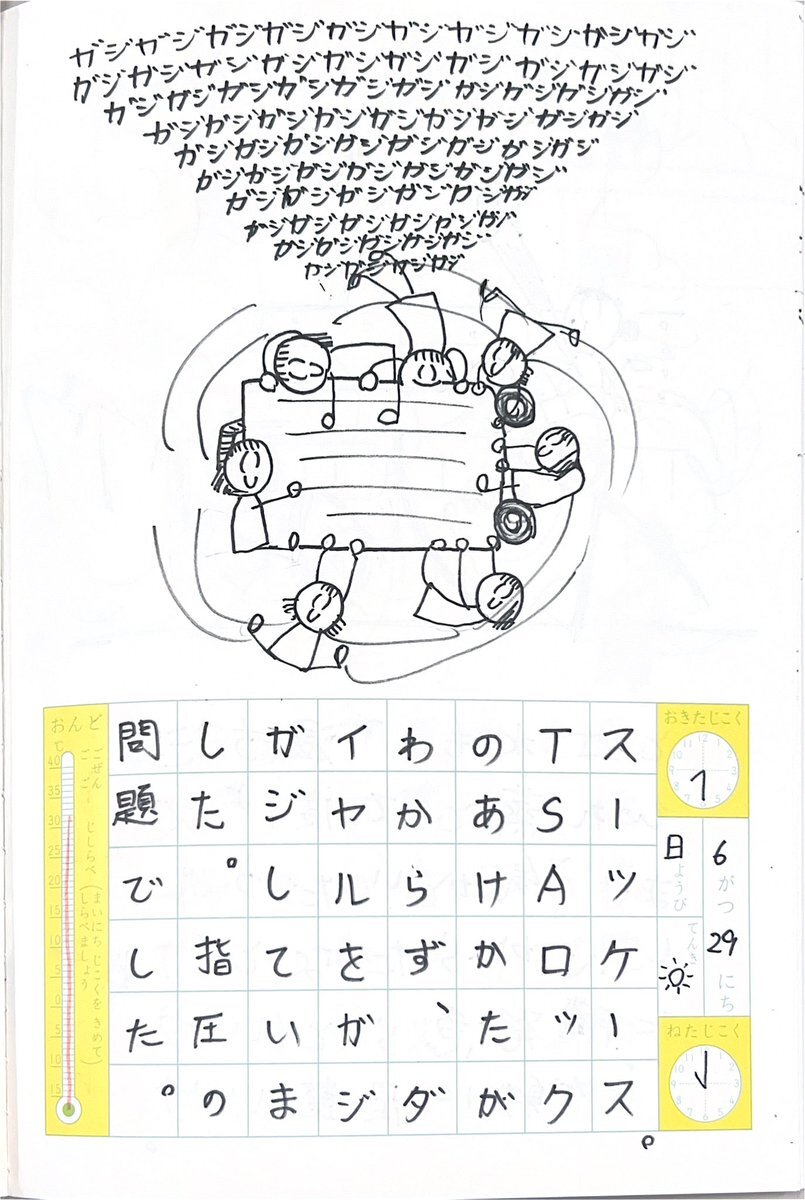 ガジガジガジガジガジガジガジガジガジガジ
ガジガジガジガジガジガジガジガジガジガジ
ガジガジガジガジガジガジガジガジガジ
ガジガジガジガジガジガジガジガジガジ
ガジガジガジガジガジガジガジガジ
ガジガジガジガジガジガジガジ
ガジガジガジガジガジガジ
ガジガジガジガジガジガジ
ガジガジガジガジガジ
ガジガジガジガジ
おきたじこく
6がつ29にち
日ようび
てんき
ねたじこく
スーツケース
TSAロック
のあけかたが
わからず、ダ
イヤルをガジ
ガジしていま
した。指圧の
問題でした。
おんど
℃
40
35
30
25
20
15
10
5
0
5
10
15
ごぜん
ごご
じしらべ
(まいにちじこくをきめて
しらべましょう)